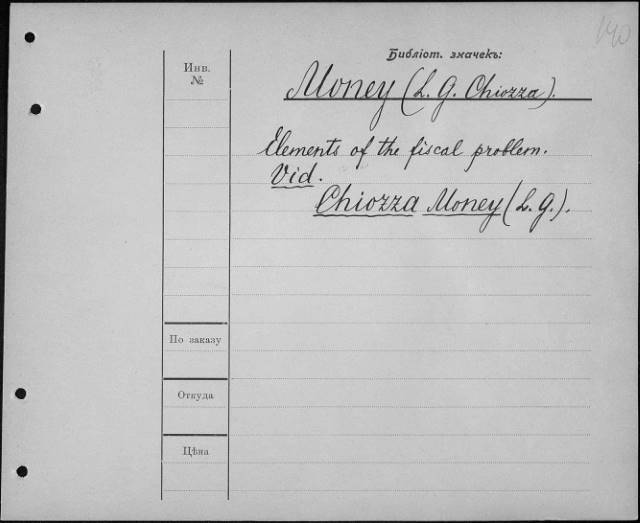 190
Библіот. значекъ:
Инв.
№
Money (L. G. Chiozza).
Elements of the fiscal problem.
Vid.
Chiozza Money (L. G.).
По заказу
Откуда
Цѣна